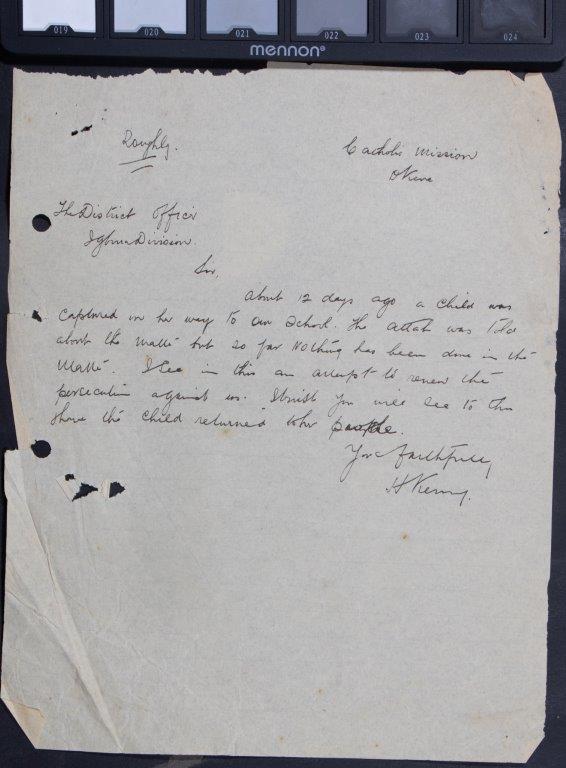 019 020 021 022 023 024
mennon®
Roughly.
Catholic Mission
Okene
The District Officer
Igbirra Division.
Sir,
About 12 days ago a child was
captured on her way to our School. The attah was told
about the matter but so far Nothing has been done in the
Matter. I see in this an attempt to renew the
persecution against us. I trust you will see to this
& have the child returned to her people.
Yours faithfully,